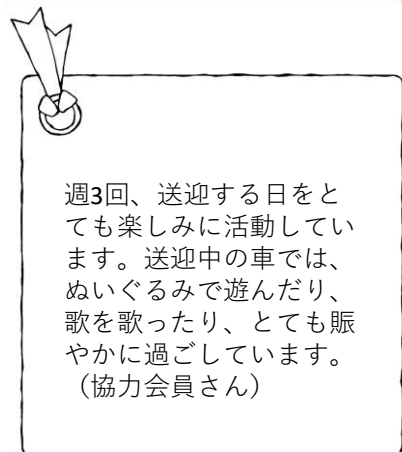 週3回、送迎する日をと
ても楽しみに活動してい
ます。送迎中の車では、
ぬいぐるみで遊んだり、
歌を歌ったり、とても賑
やかに過ごしています。
（協力会員さん）